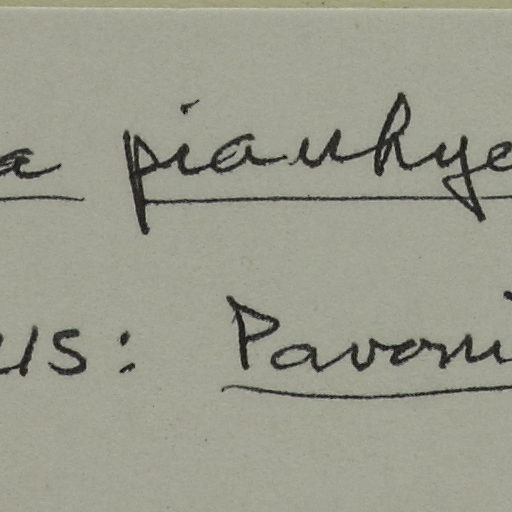 a piauhye
us: Pavoni